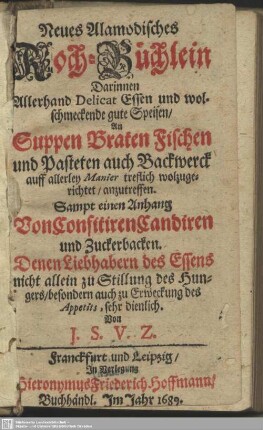 Neues Alamodisches
Koch-Büchlein
Darinnen
Allerhand Delicat Essen und wol-
schmeckende gute Speisen/
An
Suppen Braten Fischen
und Pasteten auch Backwerck
auff allerley Manier treflich wolzuge-
richtet/ anzutreffen.
Sampt einen Anhang
Von Confitiren Candiren
und Zuckerbacken.
Denen Liebhabern des Essens
nicht allein zu Stillung des Hun-
gers/ besondern auch zu Erweckung des
Appetits, sehr dienlich.
Von
J. S. V. Z.
Franckfurt und Leipzig/
In Verlegung
Hieronymus Friederich Hoffmann/
Buchhändl. Im Jahr 1689.